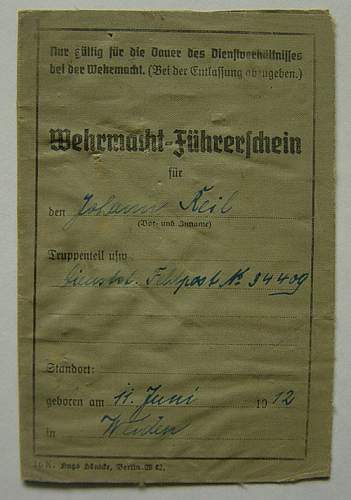 Nur gültig für die Dauer des Dienstverhältnisses
bei der Wehrmacht. (Bei der Entlassung abzugeben.)
Wehrmacht-Führerschein
für
den Johann Keil
(Vor- und Zuname)
Truppenteil usw
Dienstst. Feldpost № 34409
Standort:
geboren am 11. Juni 1912
in Weiden
Berlin-W 62.